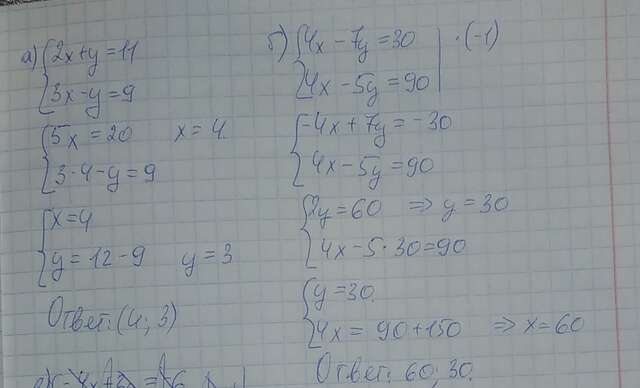 а) { 2x+y=11
3x-y=9
{ 5x=20 x=4
3·4-y=9
{ x=4
y=12-9 y=3
Ответ: (4; 3)
б) { 4x-7y=30 | ·(-1)
4x-5y=90
{ -4x+7y=-30
4x-5y=90
{ 2y=60 ⇒ y=30
4x-5·30=90
{ y=30
4x=90+150 ⇒ x=60
Ответ: 60; 30.